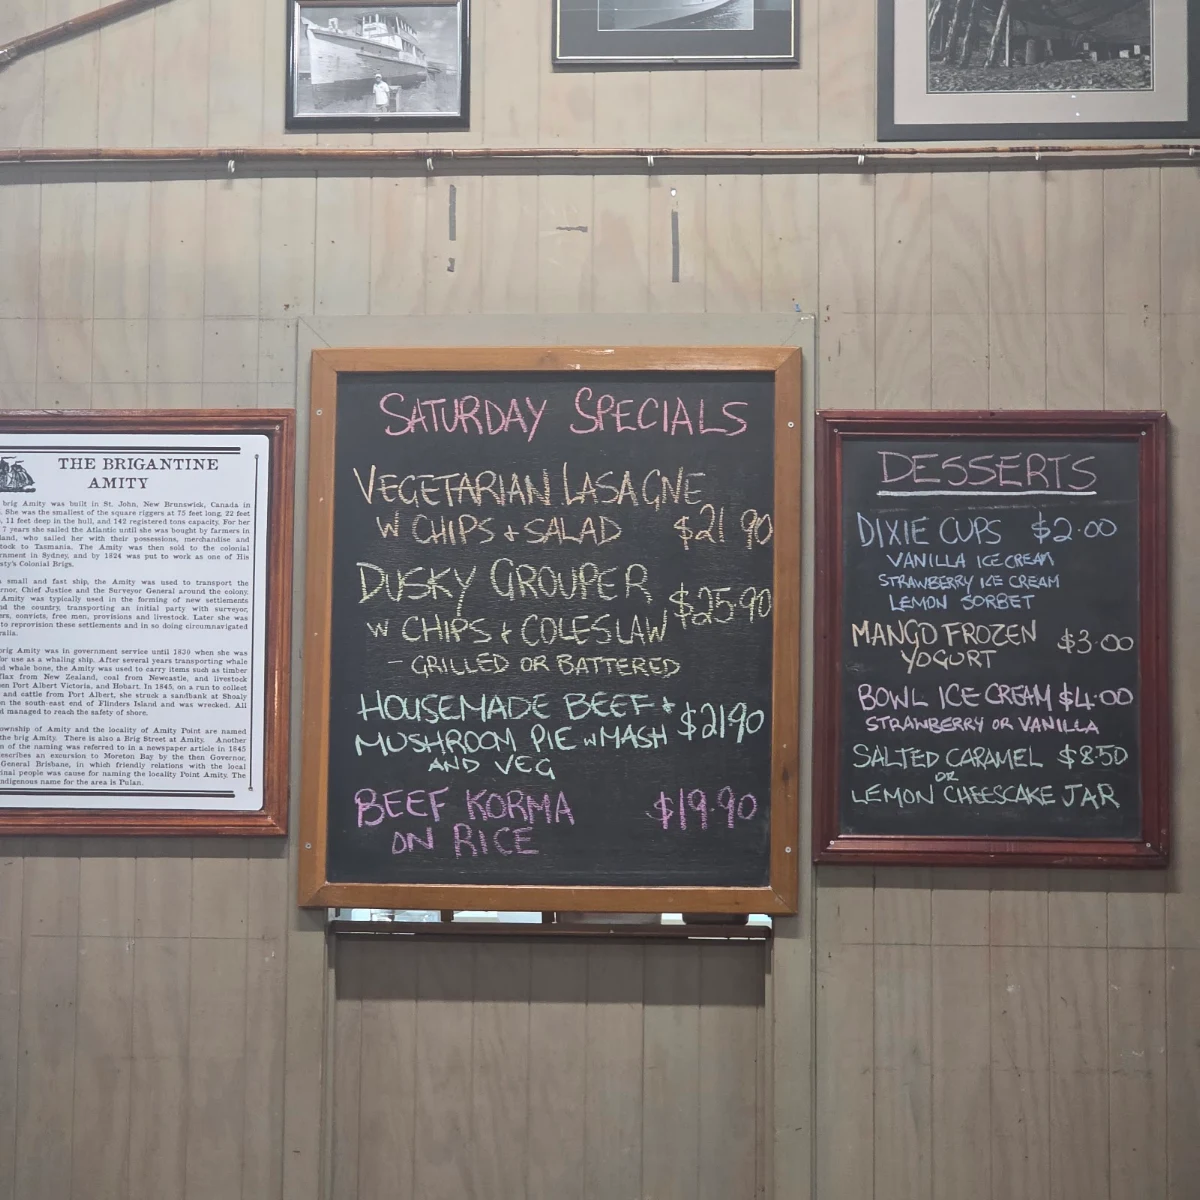 THE BRIGANTINE
AMITY
brig Amity was built in St. John, New Brunswick, Canada in
She was the smallest of the square riggers at 75 feet long, 22 feet
, 11 feet deep in the hull, and 142 registered tons capacity. For her
7 years she sailed the Atlantic until she was bought by farmers in
land, who sailed her with their possessions, merchandise and
tock to Tasmania. The Amity was then sold to the colonial
rnment in Sydney, and by 1824 was put to work as one of His
sty's Colonial Brigs.
small and fast ship, the Amity was used to transport the
rnor, Chief Justice and the Surveyor General around the colony.
Amity was typically used in the forming of new settlements
nd the country, transporting an initial party with surveyor,
ers, convicts, free men, provisions and livestock. Later she was
to reprovision these settlements and in so doing circumnavigated
ralia.
brig Amity was in government service until 1830 when she was
for use as a whaling ship. After several years transporting whale
d whale bone, the Amity was used to carry items such as timber
flax from New Zealand, coal from Newcastle, and livestock
en Port Albert Victoria, and Hobart. In 1845, on a run to collect
and cattle from Port Albert, she struck a sandbank at Shoaly
on the south-east end of Flinders Island and was wrecked. All
d managed to reach the safety of shore.
ownship of Amity and the locality of Amity Point are named
the brig Amity. There is also a Brig Street at Amity. Another
n of the naming was referred to in a newspaper article in 1845
escribes an excursion to Moreton Bay by the then Governor,
General Brisbane, in which friendly relations with the local
inal people was cause for naming the locality Point Amity. The
ndigenous name for the area is Pulan.
SATURDAY SPECIALS
VEGETARIAN LASAGNE
W CHIPS + SALAD $21.90
DUSKY GROUPER
W CHIPS + COLESLAW $25.90
- GRILLED OR BATTERED
HOUSEMADE BEEF +
MUSHROOM PIE W MASH $21.90
AND VEG
BEEF KORMA $19.90
ON RICE
DESSERTS
DIXIE CUPS $2.00
VANILLA ICE CREAM
STRAWBERRY ICE CREAM
LEMON SORBET
MANGO FROZEN
YOGURT $3.00
BOWL ICE CREAM $4.00
STRAWBERRY OR VANILLA
SALTED CARAMEL $8.50
OR
LEMON CHEESCAKE JAR